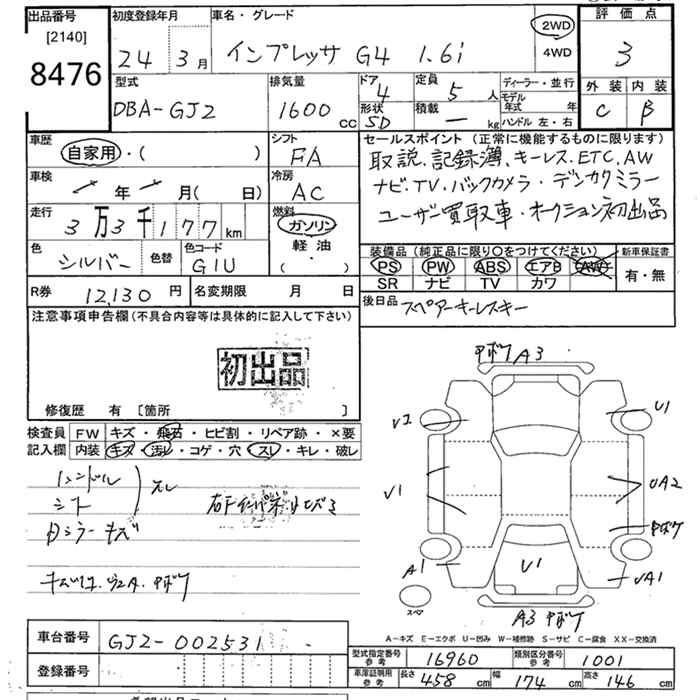 出品番号 [2140] 8476
初度登録年月 24 3月
車名・グレード インプレッサ G4 1.6i
2WD 4WD
評価点 3
外装 内装 C B
型式 DBA-GJ2
排気量 1600 CC
ドア 4 形状 5D
定員 5 人 積載 ー kg
ディーラー・並行
モデル年式 年
ハンドル 左・右
車歴 自家用・( )
シフト FA
車検 年 月(日)
冷房 AC
走行 3万3千177km
燃料 ガソリン 軽油 ( ・ )
色 シルバー 色替 色コード G1U
セールスポイント (正常に機能するものに限ります)
取説.記録簿.キーレス.ETC.AW
ナビ.TV.バックカメラ・デンカクミラー
ユーザー買取車・オークション初出品
装備品(純正品に限り○をつけてください) 新車保証書
PS PW ABS エアB AW 有・無
SR ナビ TV カワ
R券 12,130 円 名変期限 月 日
後日品 スペアーキーレスキー
注意事項申告欄(不具合内容等は具体的に記入して下さい)
初出品
修復歴 有 [箇所 ]
検査員記入欄 FW キズ・飛石・ヒビ割・リペア跡・×要
内装 キズ・汚レ・コゲ・穴・スレ・キレ・破レ
シフト スレ
キズ
A3
U1
V1
UA2
A1
U1
A3
スペア
A-キズ E-エクボ U-凹み W-補修跡 S-サビ C-腐食 XX-交換済
車台番号 GJ2-002531
登録番号
型式指定番号 参考 16960 類別区分番号 参考 1001
車庫証明用 参考 長さ 458 cm 幅 174 cm 高さ 146 cm